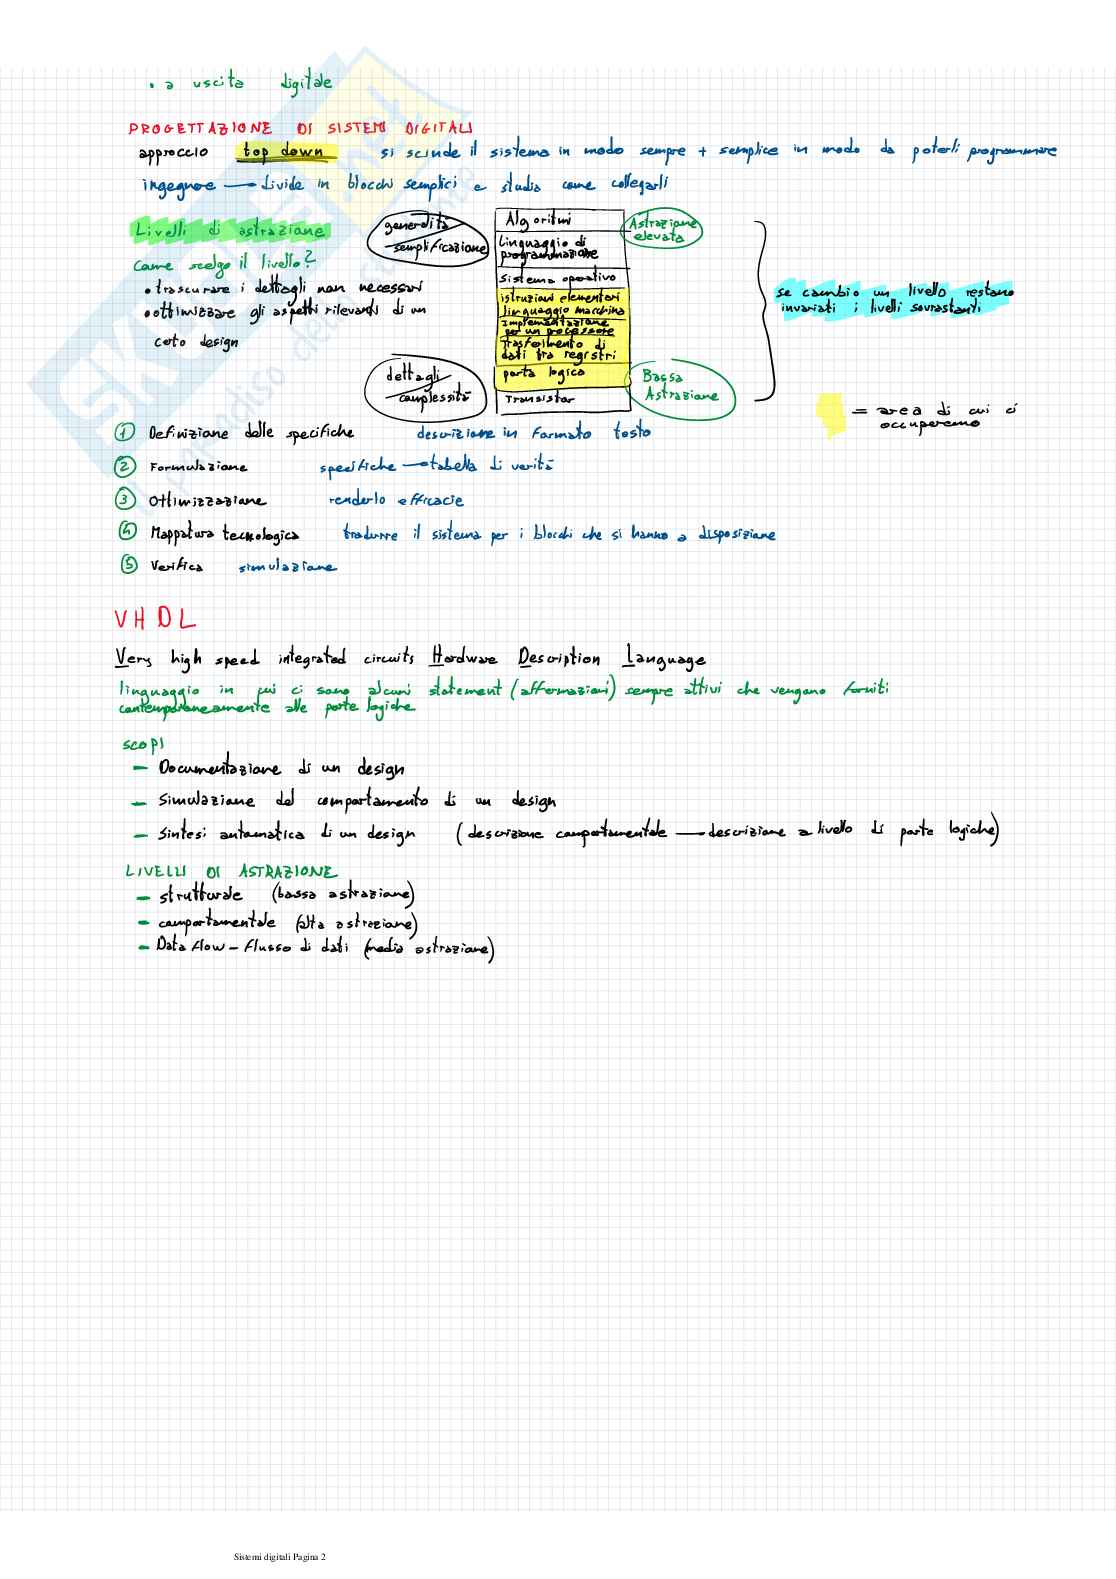 • a uscita digitale
PROGETTAZIONE DI SISTEMI DIGITALI
approccio top down si scinde il sistema in modo sempre + semplice in modo da poterli programmare
ingegnere → divide in blocchi semplici e studia come collegarli
Livelli di astrazione
Come scelgo il livello?
• trascurare i dettagli non necessari
• ottimizzare gli aspetti rilevanti di un
certo design
generalità
semplificazione
dettagli
complessità
Algoritmi
Linguaggio di
programmazione
Sistema operativo
istruzioni elementari
linguaggio macchina
Implementazione
per un processore
Trasferimento di
dati tra registri
porta logica
Transistor
Astrazione
elevata
Bassa
Astrazione
se cambio un livello, restano
invariati i livelli sovrastanti
= area di cui ci
occuperemo
1 Definizione delle specifiche descrizione in formato testo
2 Formulazione specifiche → tabella di verità
3 Ottimizzazione renderlo efficacie
4 Mappatura tecnologica tradurre il sistema per i blocchi che si hanno a disposizione
5 Verifica simulazione
VHDL
Very high speed integrated circuits Hardware Description Language
linguaggio in cui ci sono alcuni statement (affermazioni) sempre attivi che vengono forniti
contemporaneamente alle porte logiche
SCOPI
– Documentazione di un design
– Simulazione del comportamento di un design
– Sintesi automatica di un design (descrizione comportamentale → descrizione a livello di porte logiche)
LIVELLI DI ASTRAZIONE
– strutturale (bassa astrazione)
– comportamentale (alta astrazione)
– Data flow – flusso di dati (media astrazione)
Sistemi digitali Pagina 2